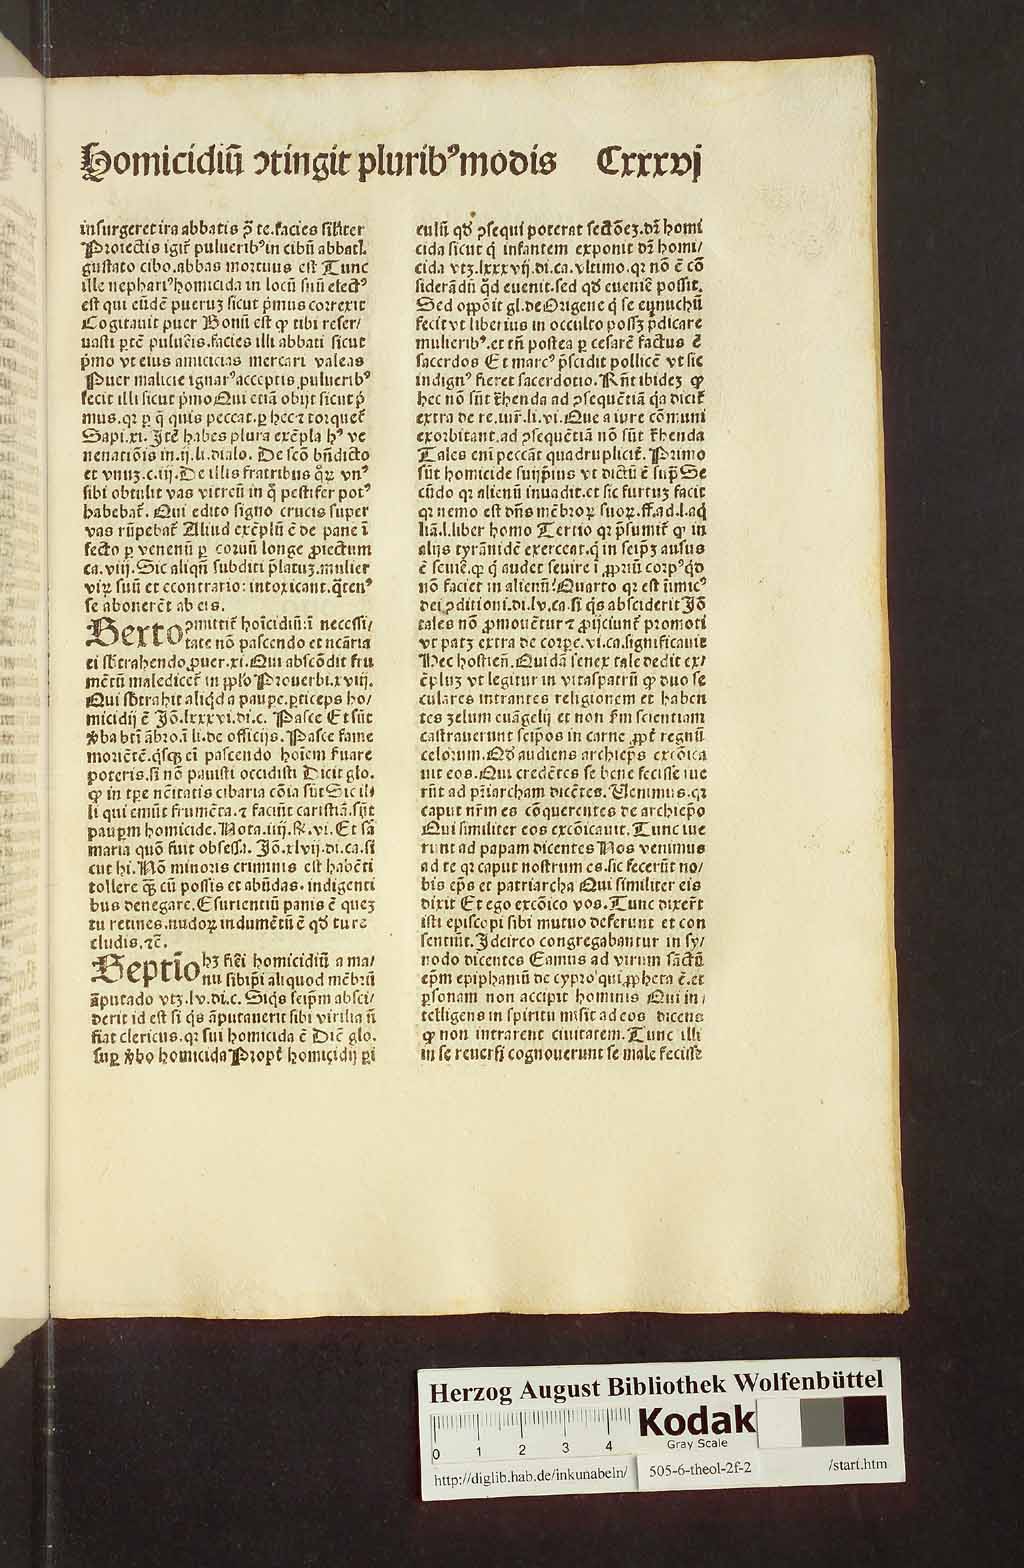 Homicidiũ ↄtingit pluribꝰ modis Cxxxvj
insurgeret ira abbatis ꝑ̃ te. facies sil̃iter
Proiectis igit̃ pulueribꝰ in cibũ abbat.
gustato cibo. abbas mortuus est Tunc
ille nephariꝰ homicida in locũ suũ electꝰ
est qui eũdẽ pueruꝫ sicut p̃mus correxit
Cogitauit puer Bonũ est ꝙ tibi reser/
uasti ꝑtẽ puluẽis. facies illi abbati sicut
p̃mo vt eius amicicias mercari valeas
Puer malicie ignarꝰ acceptis pulueribꝰ
fecit illi sicut p̃mo Qui etiã obijt sicut p̃
mus. qꝛ ꝑ q̃ quis peccat. ꝑ hec ⁊ torquet̃
Sapi. xi. Itẽ habes plura exẽpla hꝰ ve
nenatiõis in. ij. li. dialo. De scõ bñdicto
et vnuꝫ. c. iij. De illis fratribus qͦꝝ vnꝰ
sibi obtulit vas vitreũ in q̃ pestifer potꝰ
habebat̃. Qui edito signo crucis super
vas rũpebat̃ Aliud exẽplũ ẽ de pane ĩ
fecto ꝑ venenũ ꝑ coruũ longe ꝓiectum
ca. viij. Sic aliqñ subditi p̃latuꝫ. mulier
viꝝ suũ et econtrario: intoxicant. q̃tenꝰ
se abonerẽt ab eis.
Sexto ↄmittit̃ hoĩcidiũ: ĩ necessi/
tate nõ pascendo et ncãria
ei sb̃trahendo ꝓuer. xi. Qui abscõdit fru
mẽtũ maledicet̃ in pplo Prouerbi. xviij.
Qui sb̃trahit aliq̃d a paupe. ꝑticeps ho/
micidij ẽ Jõ. lxxxvi. di. c. Pasce Et sũt
v̾ba btĩ ãbro. ĩ li. de officijs. Pasce fame
moriẽtẽ. q̃sqꝫ eĩ pascendo hoĩem ẜuare
poteris. si nõ pauisti occidisti Dicit glo.
ꝙ in tꝑe ncẽitatis cibaria cõia sũt Sic il/
li qui emũt frumẽta. ⁊ faciũt caristiã. sũt
pauꝑm homicide. Nota. iiij. R̃. vi. Et sã
maria quõ fuit obsessa. Jõ. xlvij. di. ca. si
cut hi. Nõ minoris criminis est habẽti
tollere qꝫ̃ cũ possis et abũdas. indigenti
bus denegare. Esurientiũ panis ẽ queꝫ
tu retines. nudoꝝ indumẽtũ ẽ qd̾ tu re
cludis. ⁊c̃.
Septĩo hꝫ fiẽi homicidiũ a ma/
nu sibip̃i aliquod mẽbrũ
ãputado vtꝫ. lv. di. c. Siq̃s seip̃m absci/
derit id est si q̃s ãputauerit sibi virilia ñ
fiat clericus. qꝛ sui homicida ẽ Diẽ glo.
suꝑ v̾bo homicida Propt̃ homicidij ꝑi
culũ qd̾ ↄsequi poterat sectõeꝫ. dr̃ homi
cida sicut q̃ infantem exponit dr̃ homi/
cida vtꝫ. lxxxvij. di. ca. vltimo. qꝛ nõ ẽ cõ
siderãdũ q̃d euenit. sed qd̾ eueniẽ possit.
Sed oppõit gl. de Origene q̃ se eunuchũ
fecit vt liberius in occulto possꝫ p̃dicare
mulieribꝰ. et tñ postea ꝑ cesarẽ factus ẽ
sacerdos Et marcꝰ p̃scidit pollicẽ vt sic
indignꝰ fieret sacerdotio. Rñt ibideꝫ ꝙ
hec nõ sũt tr̃henda ad ↄsequẽtiã q̃a dicit̃
extra de re. iur̃. li. vi. Que a iure cõmuni
exorbitant. ad ↄsequẽtiã nõ sũt tr̃henda
Tales eni peccãt quadruplicit̃. Primo
sũt homicide suijpsius vt dictũ ẽ sup̃ Se
cũdo qꝛ alienũ inuadit. et sic furtuꝫ facit
qꝛ nemo est dñs mẽbroꝝ suoꝝ. ff. ad. l. aq̃
liã. l. liber homo Tertio qꝛ p̃sumit̃ ꝙ in
alijs tyrãnidẽ exerceat. q̃ in seip̃ꝫ ausus
ẽ seuiẽ. ꝙ q̃ audet seuire ĩ ꝓpriũ corpꝰ q̃d
nõ faciet in alienũ? Quarto qꝛ est inimicꝰ
dei ↄditioni. di. lv. ca. si q̃s absciderit Jõ
tales nõ ꝓmouẽtur ⁊ ꝓijciunt̃ promoti
vt patꝫ extra de corꝑe. vi. ca. significauit
Hec hostieñ. Quidã senex tale dedit ex/
ẽpluꝫ vt legitur in vitaspatrũ ꝙ duo se
culares intrantes religionem et haben
tes zelum euãgelij et non ẜm scientiam
castrauerunt seipos in carne ꝓpt̃ regnũ
celorum. Qd̾ audiens archieps̃ excõica
uit eos. Qui credẽtes se bene fecisse iue
rũt ad pr̃iarcham dicẽtes. Uenimus. qꝛ
caput nr̃m es cõquerentes de archiep̃o
Qui similiter eos excõicauit. Tunc iue
runt ad papam dicentes Nos venimus
ad te qꝛ caput nostrum es. sic fecerũt no/
bis ep̃s et patriarcha Qui similiter eis
dixit Et ego excõico vos. Tunc dixer̃t
isti episcopi sibi mutuo deferunt et con
sentiũt. Idcirco congregabantur in sy/
nodo dicentes Eamus ad virum sãctũ
ep̃m epiphaniũ de cypro qui ꝓpheta ẽ. et
ꝑsonam non accipit hominis Qui in/
telligens in spiritu misit ad eos dicens
ꝙ non intrarent ciuitatem. Tunc illi
in se reuersi cognouerunt se male fecisse
Herzog August Bibliothek Wolfenbüttel
0 1 2 3 4
Kodak
Gray Scale
http://diglib.hab.de/inkunabeln/ 505-6-theol-2f-2 /start.htm